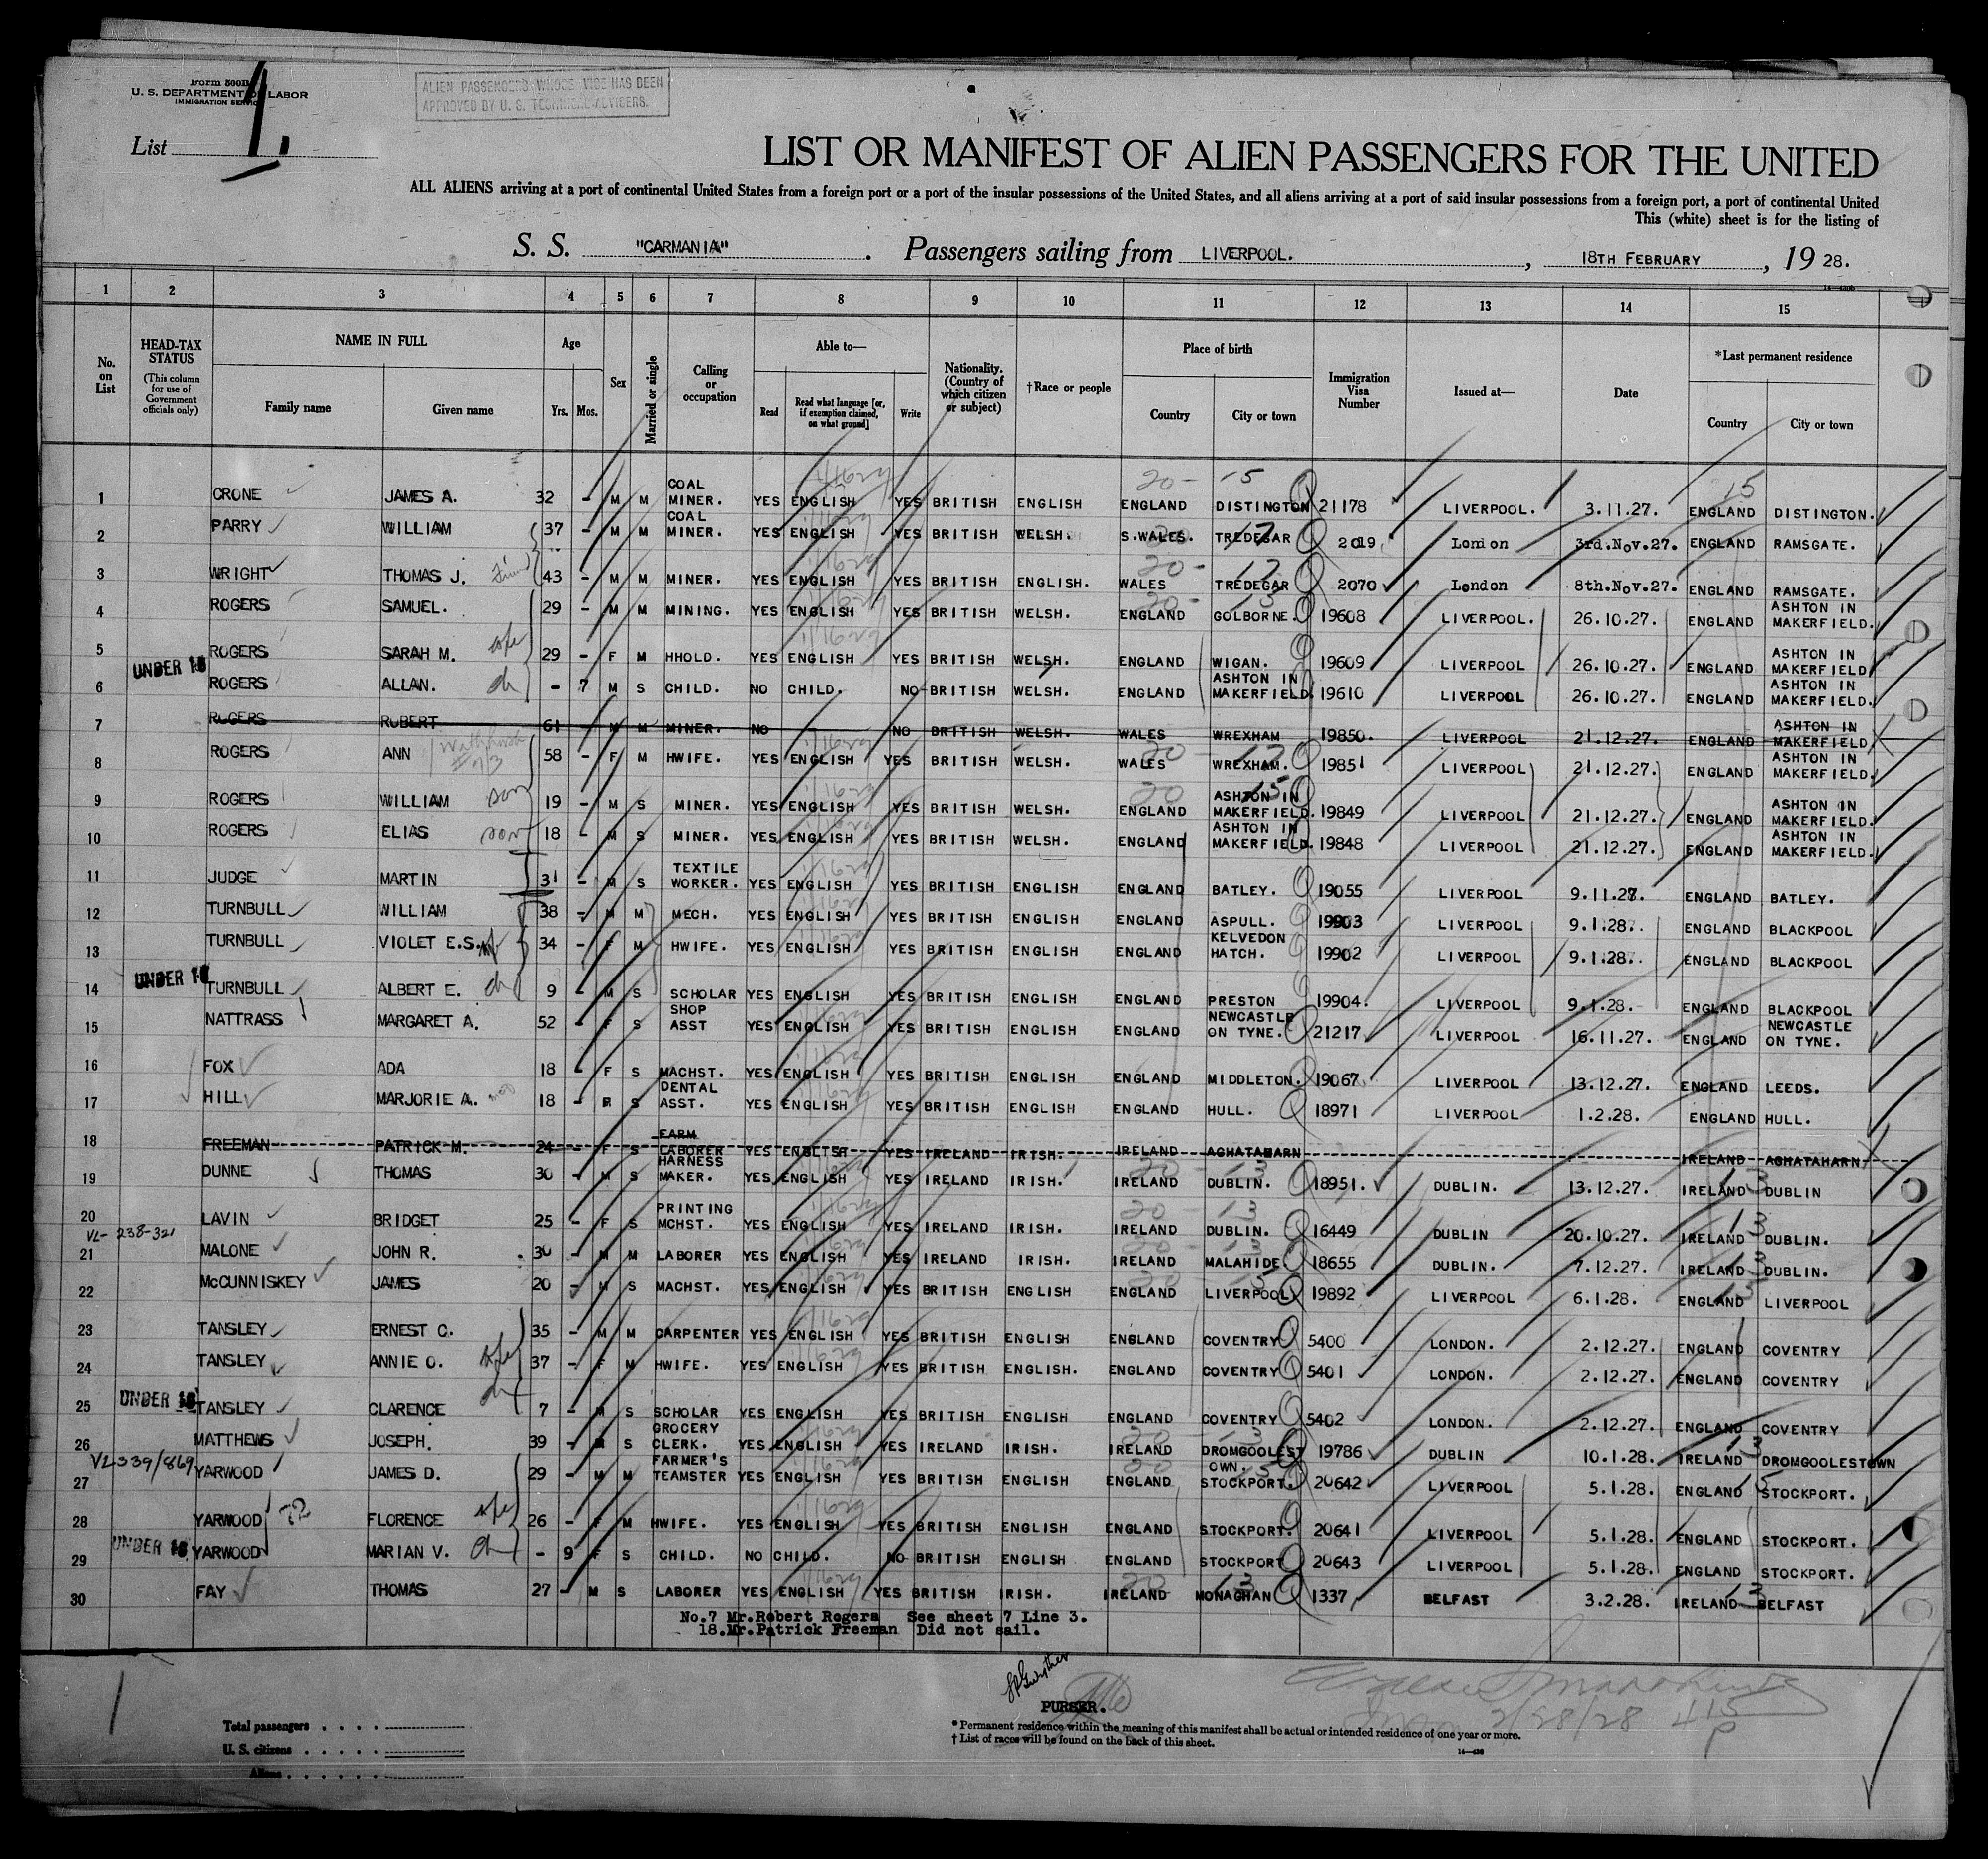 Form 500B
U. S. DEPARTMENT OF LABOR
IMMIGRATION SERVICE
ALIEN PASSENGERS WHOSE VISE HAS BEEN
APPROVED BY U. S. TECHNICAL ADVISERS.
List 1.
LIST OR MANIFEST OF ALIEN PASSENGERS FOR THE UNITED
ALL ALIENS arriving at a port of continental United States from a foreign port or a port of the insular possessions of the United States, and all aliens arriving at a port of said insular possessions from a foreign port, a port of continental United
This (white) sheet is for the listing of
S. S. "CARMANIA" . Passengers sailing from LIVERPOOL. , 18TH FEBRUARY , 19 28.
1 2 3 4 5 6 7 8 9 10 11 12 13 14 15
No. on List
HEAD-TAX STATUS (This column for use of Government officials only)
NAME IN FULL
Family name Given name
Age
Yrs. Mos.
Sex
Married or single
Calling or occupation
Able to—
Read Read what language [or, if exemption claimed, on what ground] Write
Nationality. (Country of which citizen or subject)
†Race or people
Place of birth
Country City or town
Immigration Visa Number
Issued at—
Date
*Last permanent residence
Country City or town
1 CRONE JAMES A. 32 - M M COAL MINER. YES ENGLISH YES BRITISH ENGLISH ENGLAND DISTINGTON 21178 LIVERPOOL. 3.11.27. ENGLAND DISTINGTON.
2 PARRY WILLIAM 37 - M M COAL MINER. YES ENGLISH YES BRITISH WELSH. S.WALES. TREDEGAR 2019 London 3rd.Nov.27. ENGLAND RAMSGATE.
3 WRIGHT THOMAS J. 43 - M M MINER. YES ENGLISH YES BRITISH ENGLISH. WALES TREDEGAR 2070 London 8th.Nov.27. ENGLAND RAMSGATE.
4 ROGERS SAMUEL. 29 - M M MINING. YES ENGLISH YES BRITISH WELSH. ENGLAND GOLBORNE. 19608 LIVERPOOL. 26.10.27. ENGLAND ASHTON IN MAKERFIELD.
5 ROGERS SARAH M. wife 29 - F M HHOLD. YES ENGLISH YES BRITISH WELSH. ENGLAND WIGAN. 19609 LIVERPOOL 26.10.27. ENGLAND ASHTON IN MAKERFIELD
UNDER 16
6 ROGERS ALLAN. ch - 7 M S CHILD. NO CHILD. NO BRITISH WELSH. ENGLAND ASHTON IN MAKERFIELD. 19610 LIVERPOOL 26.10.27. ENGLAND ASHTON IN MAKERFIELD.
7 ROGERS ROBERT 61 - M M MINER. NO - NO BRITISH WELSH. WALES WREXHAM 19850. LIVERPOOL 21.12.27. ENGLAND ASHTON IN MAKERFIELD
8 ROGERS ANN 58 - F M HWIFE. YES ENGLISH YES BRITISH WELSH. WALES WREXHAM. 19851 LIVERPOOL 21.12.27. ENGLAND ASHTON IN MAKERFIELD.
9 ROGERS WILLIAM son 19 - M S MINER. YES ENGLISH YES BRITISH WELSH. ENGLAND ASHTON IN MAKERFIELD. 19849 LIVERPOOL 21.12.27. ENGLAND ASHTON IN MAKERFIELD.
10 ROGERS ELIAS son 18 - M S MINER. YES ENGLISH YES BRITISH WELSH. ENGLAND ASHTON IN MAKERFIELD. 19848 LIVERPOOL 21.12.27. ENGLAND ASHTON IN MAKERFIELD.
11 JUDGE MARTIN 31 - M S TEXTILE WORKER. YES ENGLISH YES BRITISH ENGLISH ENGLAND BATLEY. 19055 LIVERPOOL 9.11.27. ENGLAND BATLEY.
12 TURNBULL WILLIAM 38 - M M MECH. YES ENGLISH YES BRITISH ENGLISH ENGLAND ASPULL. 19903 LIVERPOOL 9.1.28. ENGLAND BLACKPOOL
13 TURNBULL VIOLET E.S. wf 34 - F M HWIFE. YES ENGLISH YES BRITISH ENGLISH ENGLAND KELVEDON HATCH. 19902 LIVERPOOL 9.1.28. ENGLAND BLACKPOOL
UNDER 16
14 TURNBULL ALBERT E. ch 9 - M S SCHOLAR YES ENGLISH YES BRITISH ENGLISH ENGLAND PRESTON 19904. LIVERPOOL 9.1.28. ENGLAND BLACKPOOL
15 NATTRASS MARGARET A. 52 - F S SHOP ASST YES ENGLISH YES BRITISH ENGLISH ENGLAND NEWCASTLE ON TYNE. 21217 LIVERPOOL 16.11.27. ENGLAND NEWCASTLE ON TYNE.
16 FOX ADA 18 - F S MACHST. YES ENGLISH YES BRITISH ENGLISH ENGLAND MIDDLETON. 19067 LIVERPOOL 13.12.27. ENGLAND LEEDS.
17 HILL MARJORIE A. 18 - F S DENTAL ASST. YES ENGLISH YES BRITISH ENGLISH ENGLAND HULL. 18971 LIVERPOOL 1.2.28. ENGLAND HULL.
18 FREEMAN PATRICK M. 24 - F S FARM LABORER YES ENGLISH YES IRELAND IRISH. IRELAND AGHATAHARN IRELAND AGHATAHARN
19 DUNNE THOMAS 30 - M S HARNESS MAKER. YES ENGLISH YES IRELAND IRISH. IRELAND DUBLIN. 18951. DUBLIN. 13.12.27. IRELAND DUBLIN
20 LAVIN BRIDGET 25 - F S PRINTING MCHST. YES ENGLISH YES IRELAND IRISH. IRELAND DUBLIN. 16449 DUBLIN 20.10.27. IRELAND DUBLIN.
VL- 238-321
21 MALONE JOHN R. 30 - M M LABORER YES ENGLISH YES IRELAND IRISH. IRELAND MALAHIDE. 18655 DUBLIN. 7.12.27. IRELAND DUBLIN.
22 McCUNNISKEY JAMES 20 - M S MACHST. YES ENGLISH YES BRITISH ENGLISH ENGLAND LIVERPOOL 19892 LIVERPOOL 6.1.28. ENGLAND LIVERPOOL
23 TANSLEY ERNEST C. 35 - M M CARPENTER YES ENGLISH YES BRITISH ENGLISH ENGLAND COVENTRY 5400 LONDON. 2.12.27. ENGLAND COVENTRY
24 TANSLEY ANNIE O. wife 37 - F M HWIFE. YES ENGLISH YES BRITISH ENGLISH. ENGLAND COVENTRY 5401 LONDON. 2.12.27. ENGLAND COVENTRY
UNDER 16
25 TANSLEY CLARENCE ch 7 - M S SCHOLAR YES ENGLISH YES BRITISH ENGLISH ENGLAND COVENTRY 5402 LONDON. 2.12.27. ENGLAND COVENTRY
26 MATTHEWS JOSEPH. 39 - M S GROCERY CLERK. YES ENGLISH YES IRELAND IRISH. IRELAND DROMGOOLEST OWN. 19786 DUBLIN 10.1.28. IRELAND DROMGOOLESTOWN
VL339/869
27 YARWOOD JAMES D. 29 - M M FARMER'S TEAMSTER YES ENGLISH YES BRITISH ENGLISH ENGLAND STOCKPORT. 20642 LIVERPOOL 5.1.28. ENGLAND STOCKPORT.
28 YARWOOD FLORENCE wife 26 - F M HWIFE. YES ENGLISH YES BRITISH ENGLISH ENGLAND STOCKPORT. 20641 LIVERPOOL 5.1.28. ENGLAND STOCKPORT.
UNDER 16
29 YARWOOD MARIAN V. ch - 9 F S CHILD. NO CHILD. NO BRITISH ENGLISH ENGLAND STOCKPORT 20643 LIVERPOOL 5.1.28. ENGLAND STOCKPORT.
30 FAY THOMAS 27 - M S LABORER YES ENGLISH YES BRITISH IRISH. IRELAND MONAGHAN 1337 BELFAST 3.2.28. IRELAND BELFAST
No.7 Mr.Robert Rogers See sheet 7 Line 3.
18.Mr.Patrick Freeman Did not sail.
PURSER.
2/28/28
Total passengers . . . .
U. S. citizens . . . . .
Aliens . . . . . .
* Permanent residence within the meaning of this manifest shall be actual or intended residence of one year or more.
† List of races will be found on the back of this sheet.